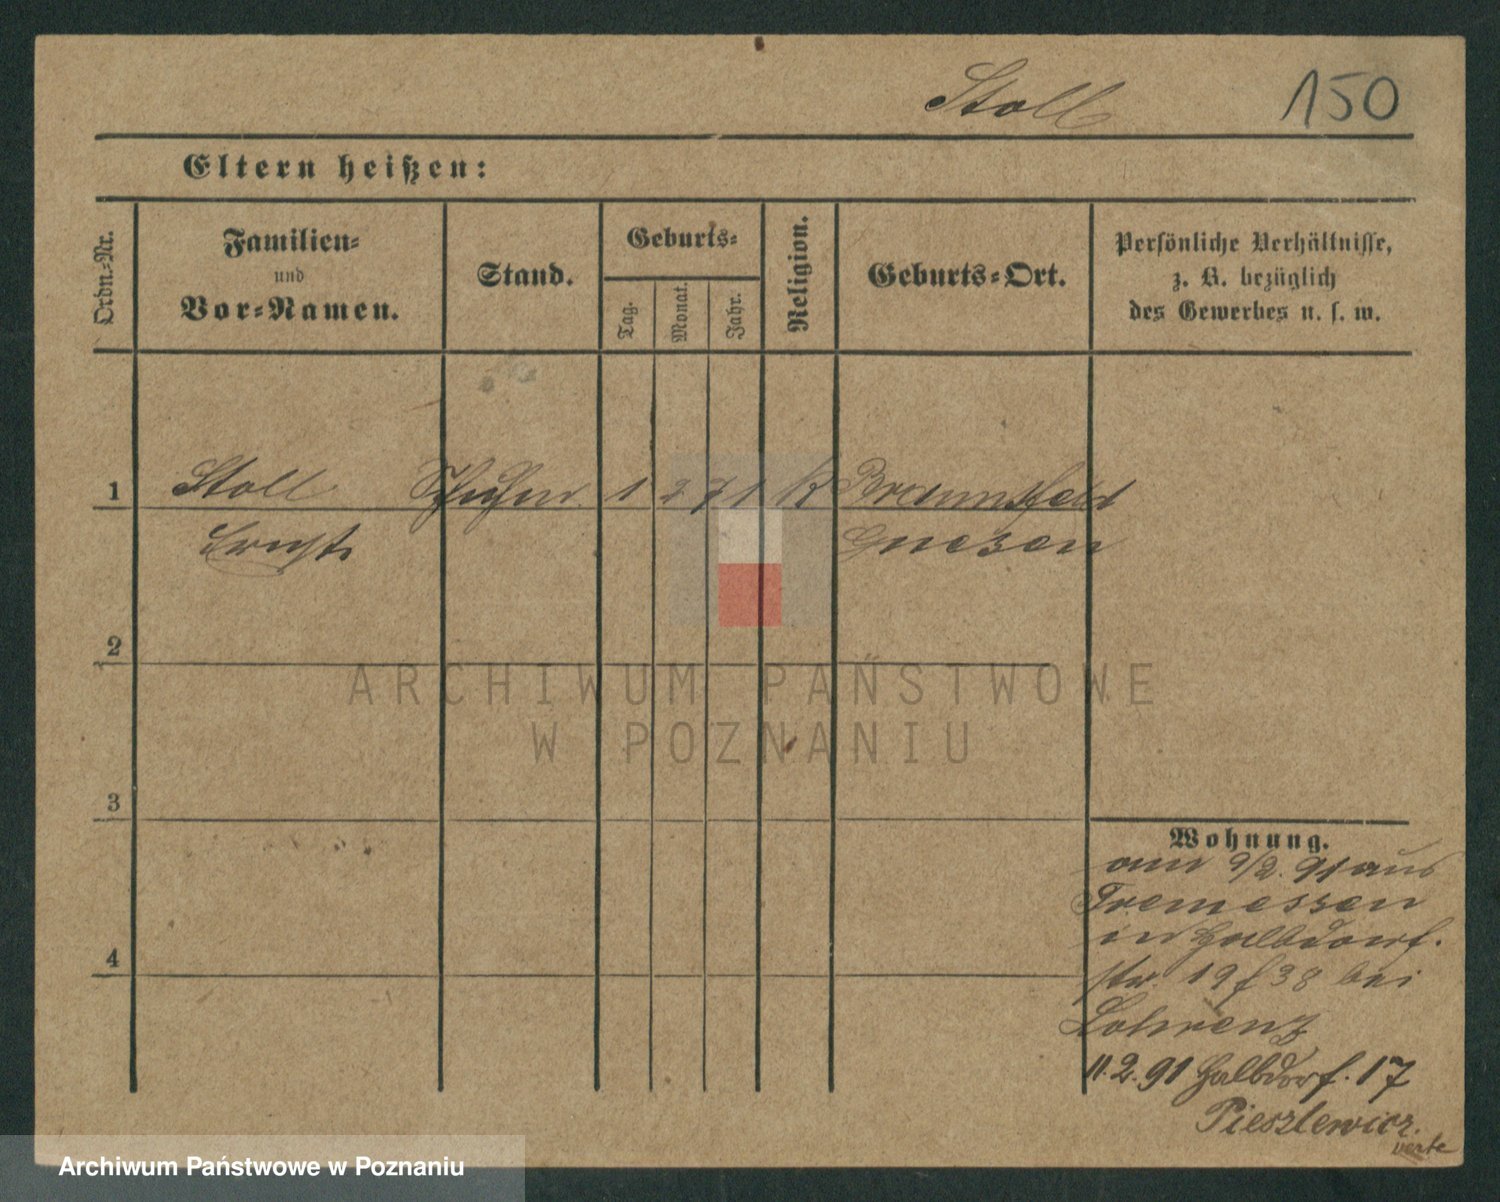 Stoll 150
Eltern heißen:
Ordn.-Nr.
Familien-
und
Vor-Namen.
Stand.
Geburts-
Tag.
Monat.
Jahr.
Religion.
Geburts-Ort.
Persönliche Verhältnisse,
z. B. bezüglich
des Gewerbes u. s. w.
1 Stoll 1 2 71 K Braunsfeld
Ernst Gnesen
2
3
4
Wohnung.
am 9/2. 91 aus
Tremessen
in Halbdorf-
str. 19 38 bei
Lohrenz
11.2.91 Halbdorf. 17
Pieszlewicz.
verte
ARCHIWUM PAŃSTWOWE
W POZNANIU
Archiwum Państwowe w Poznaniu